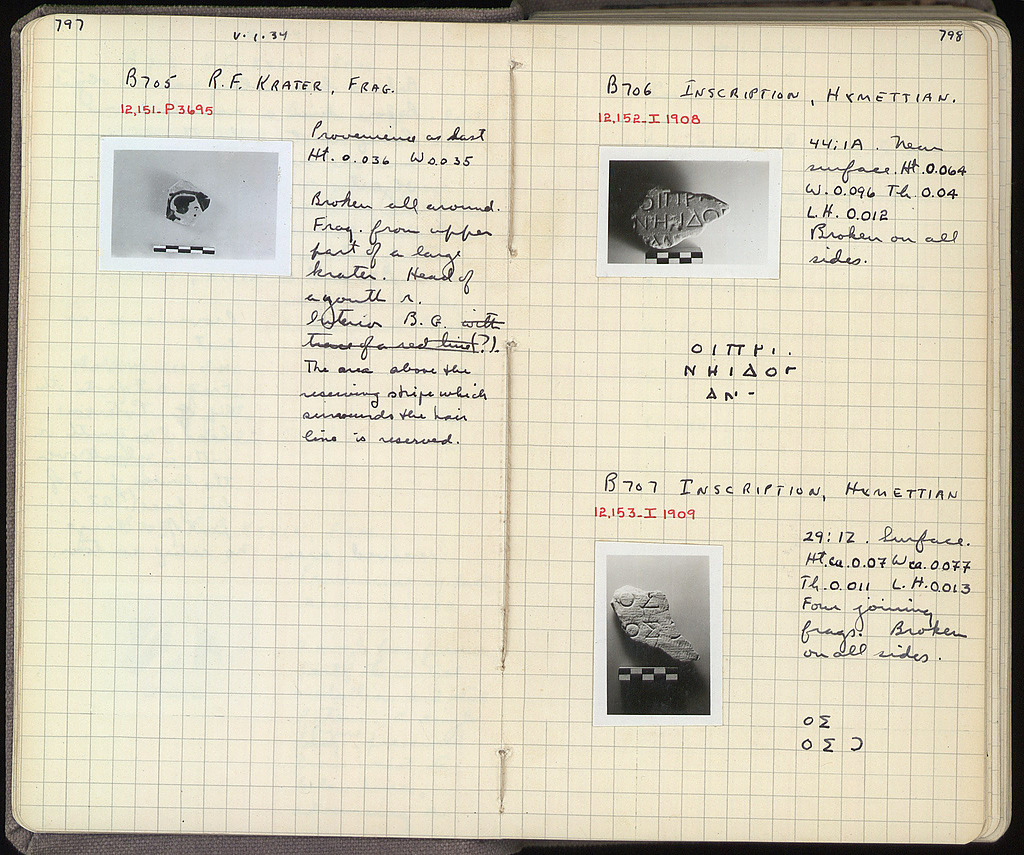 797
V. 1. 34
B705 R.F. KRATER, FRAG.
12,151-P3695
Provenience as last
Ht. 0.036 W 0.035
Broken all around.
Frag. from upper
part of a large
krater. Head of
a youth r.
Interior B.G. with
trace of a red line(?).
The area above the
reserving stripe which
surrounds the hair
line is reserved.
798
B706 INSCRIPTION, HYMETTIAN.
12,152-I 1908
44:1A. Near
surface. Ht. 0.064
W. 0.096 Th. 0.04
L.H. 0.012
Broken on all
sides.
ΝΗΙΔΟΓ
ΑΝ-
B707 INSCRIPTION, HYMETTIAN
12,153-I 1909
29:ΙΖ. Surface.
Ht. ca. 0.07 W ca. 0.077
Th. 0.011 L.H. 0.013
Four joining
frags. Broken
on all sides.
ΟΣ
ΟΣ Ͻ